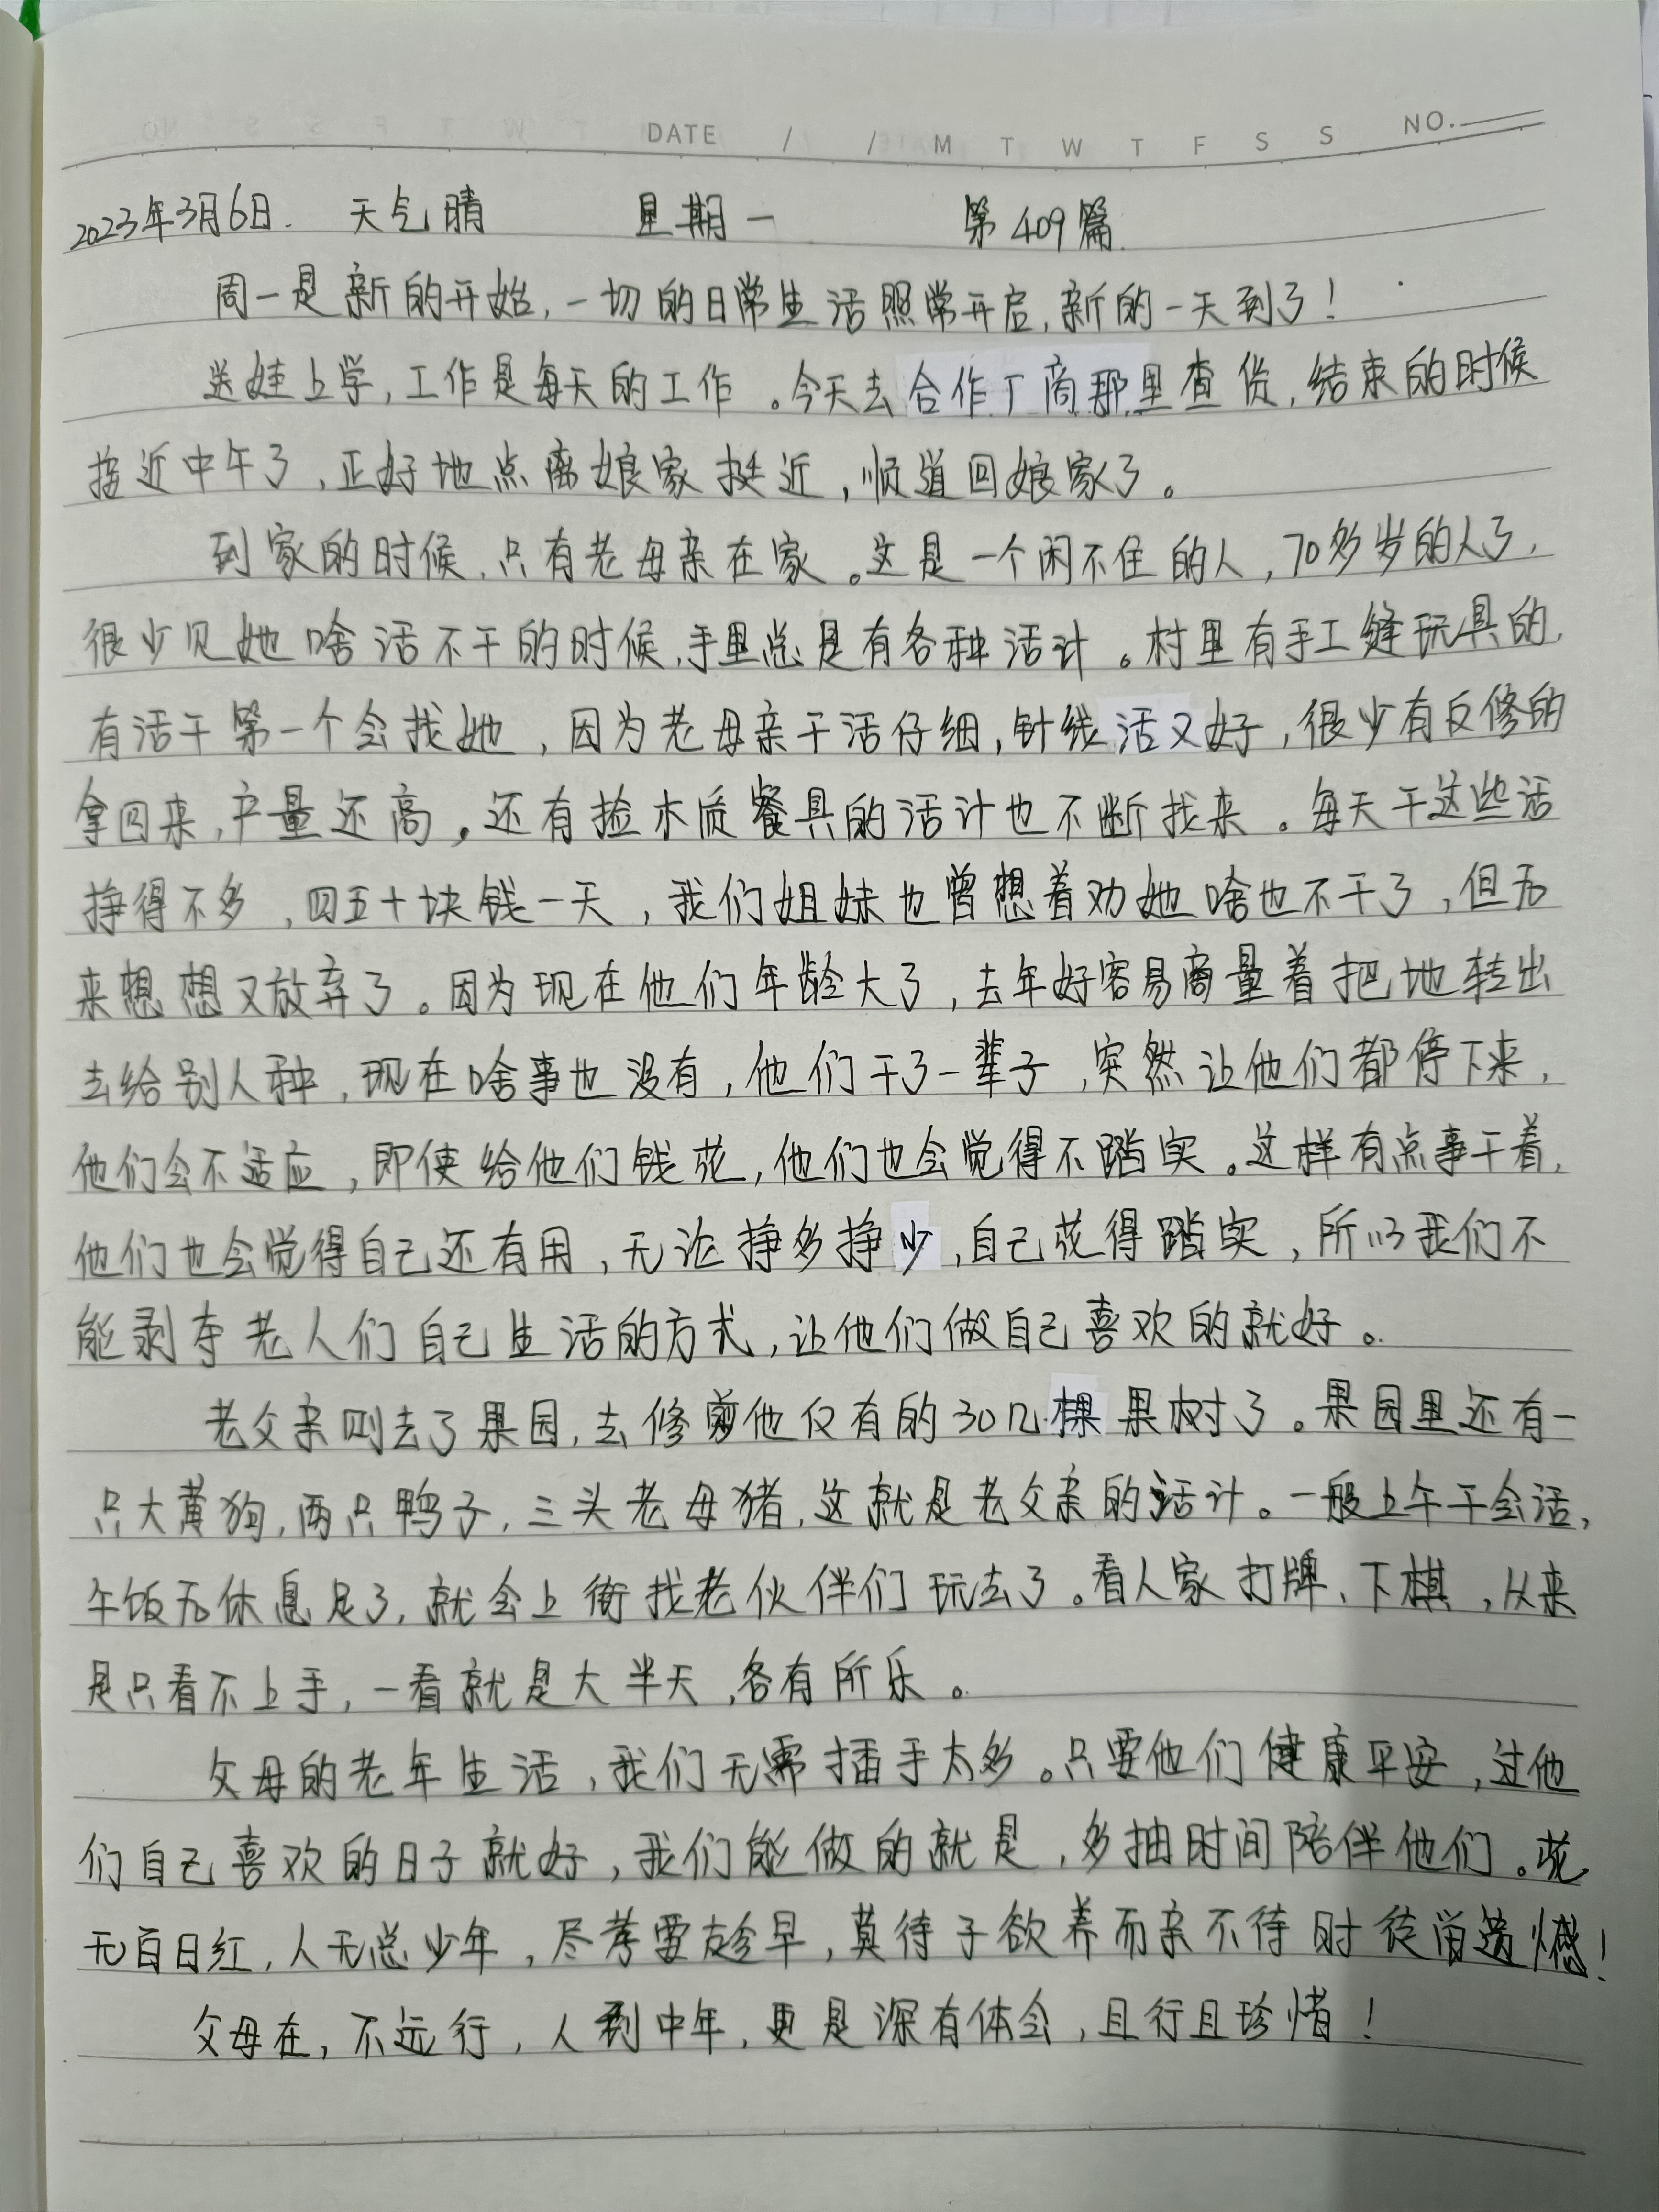 DATE / / M T W T F S S NO.
2023年3月6日. 天气晴 星期一 第409篇
周一是新的开始,一切的日常生活照常开启,新的一天到了!
送娃上学,工作是每天的工作。今天去合作厂商那里查货,结束的时候
接近中午了,正好地点离娘家挺近,顺道回娘家了。
到家的时候,只有老母亲在家。这是一个闲不住的人,70多岁的人了,
很少见她啥活不干的时候,手里总是有各种活计。村里有手工缝玩具的,
有活干第一个会找她,因为老母亲干活仔细,针线活又好,很少有反修的
拿回来,产量还高。还有捡木质餐具的活计也不断找来。每天干这些活
挣得不多,四五十块钱一天,我们姐妹也曾想着劝她啥也不干了,但后
来想想又放弃了。因为现在他们年龄大了,去年好容易商量着把地转出
去给别人种,现在啥事也没有,他们干了一辈子,突然让他们都停下来,
他们会不适应,即使给他们钱花,他们也会觉得不踏实。这样有点事干着,
他们也会觉得自己还有用,无论挣多挣少,自己花得踏实,所以我们不
能剥夺老人们自己生活的方式,让他们做自己喜欢的就好。
老父亲则去了果园,去修剪他仅有的30几棵果树了。果园里还有一
只大黄狗,两只鸭子,三头老母猪,这就是老父亲的活计。一般上午干会活,
午饭后休息足了,就会上街找老伙伴们玩去了。看人家打牌、下棋,从来
是只看不上手,一看就是大半天,各有所乐。
父母的老年生活,我们无需插手太多。只要他们健康平安,过他
们自己喜欢的日子就好,我们能做的就是,多抽时间陪伴他们。花
无百日红,人无总少年,尽孝要趁早,莫待子欲养而亲不待时徒留遗憾!
父母在,不远行,人到中年,更是深有体会,且行且珍惜!